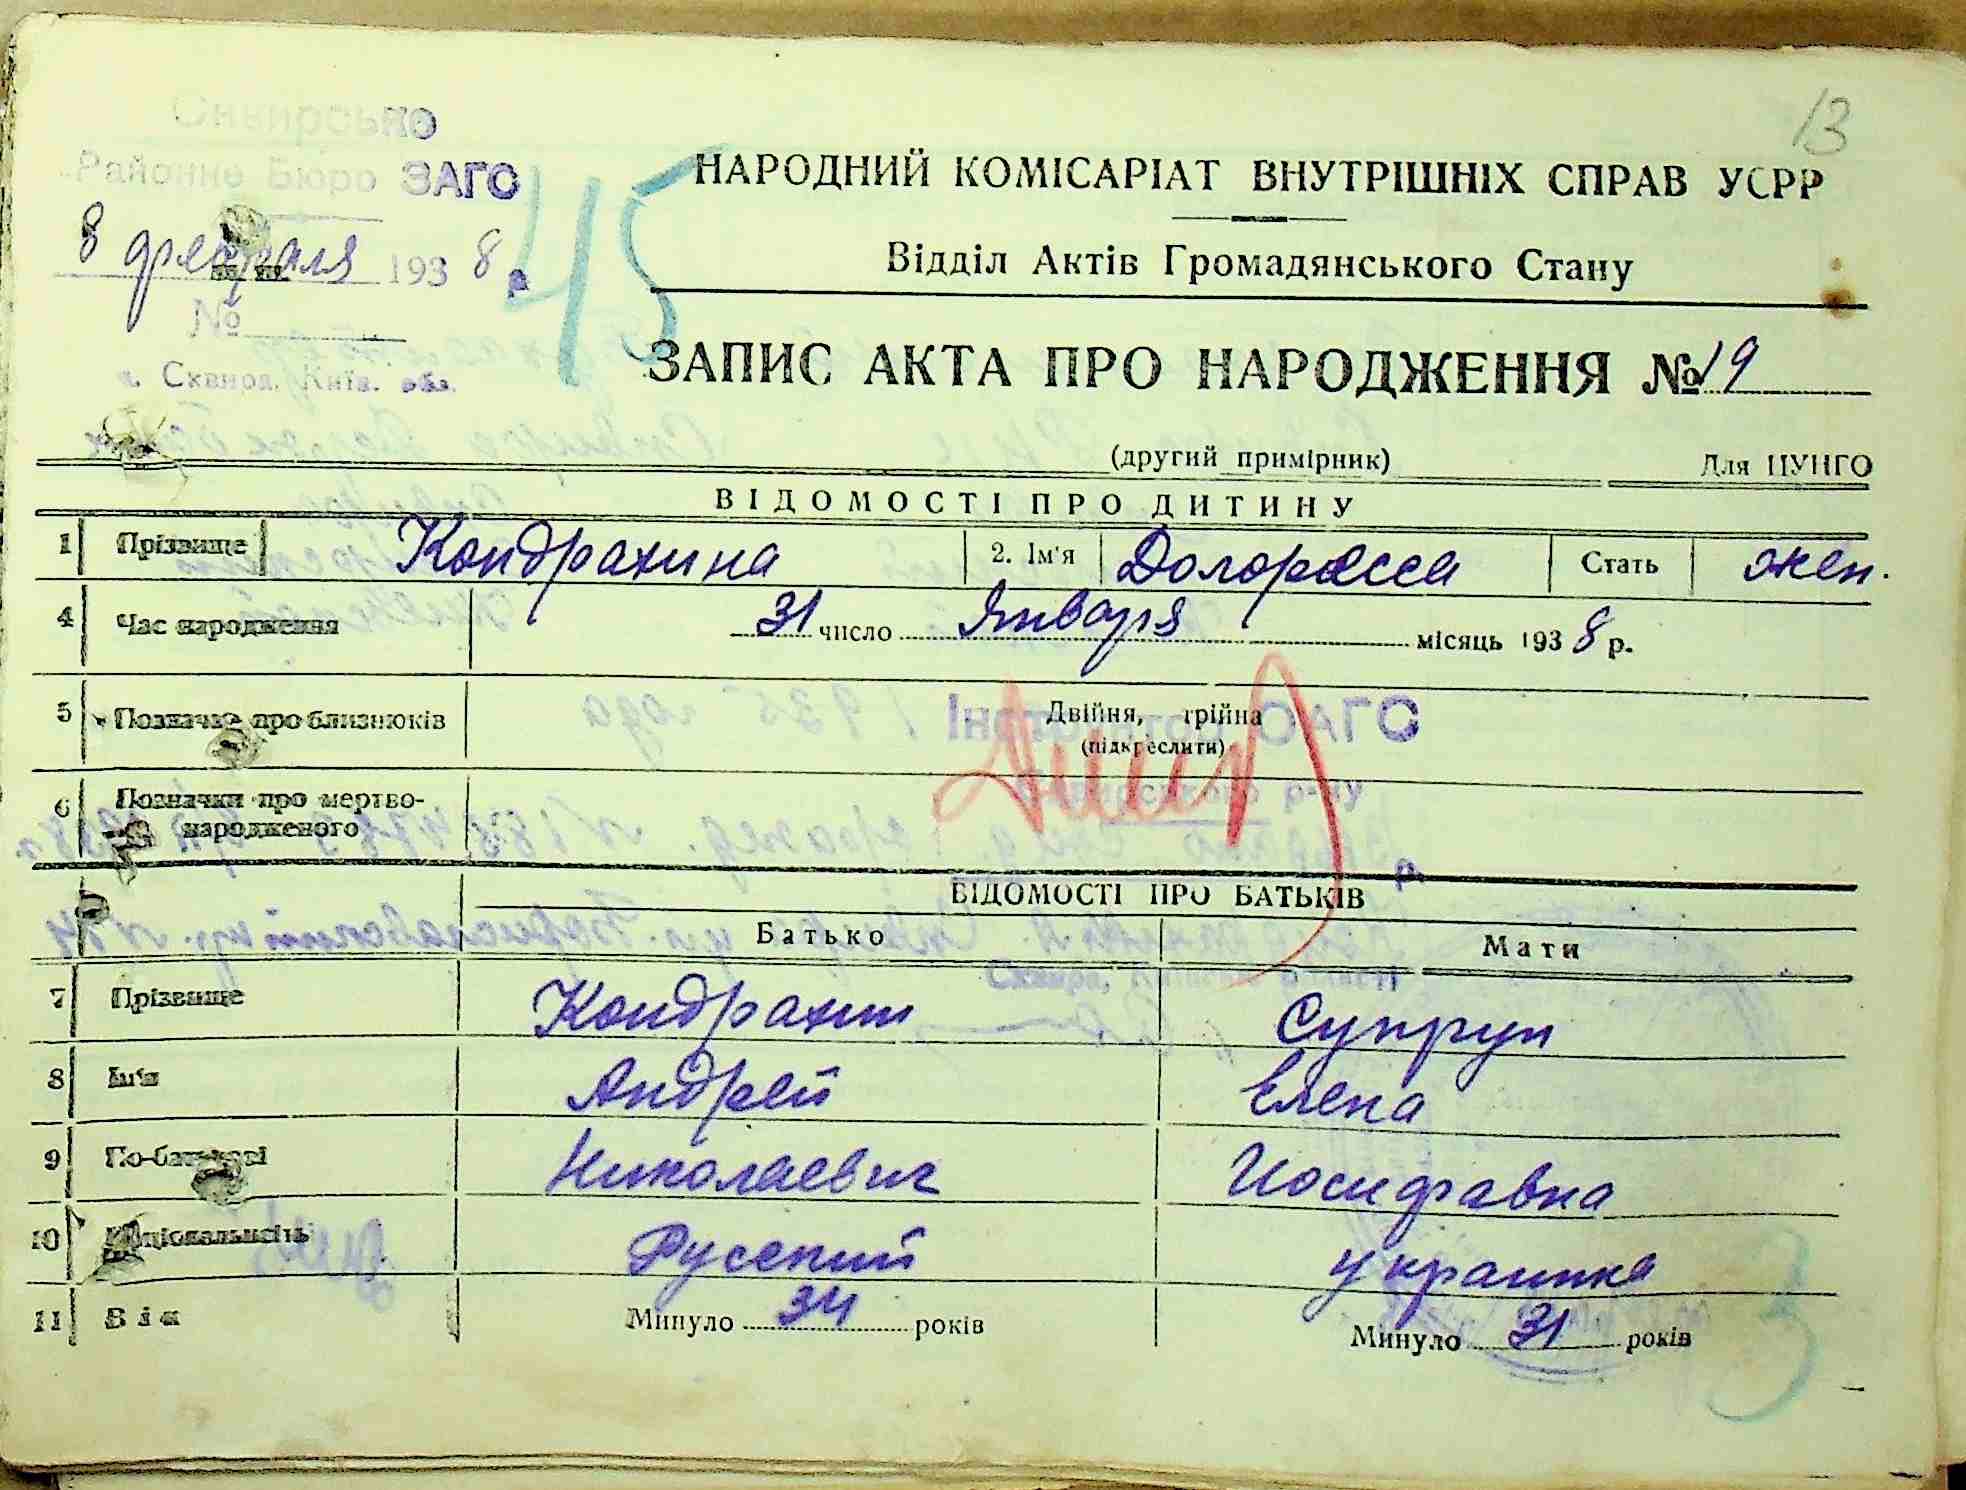 13
Сквирсько
Районне Бюро ЗАГС
8 февраля 1938 р.
№
м. Сквира, Київ. обл.
45
НАРОДНИЙ КОМІСАРІАТ ВНУТРІШНІХ СПРАВ УСРР
Відділ Актів Громадянського Стану
ЗАПИС АКТА ПРО НАРОДЖЕННЯ № 19
(другий примірник) Для ЦУНГО
ВІДОМОСТІ ПРО ДИТИНУ
1 Прізвище Кондрахина 2. Ім'я Долоресса Стать жен.
4 Час народження 31 число Января місяць 1938 р.
5 Позначка про близнюків Двійня, трійна
(підкреслити)
Інспектор ЗАГС
6 Позначки про мертво-
народженого
р-ну
ВІДОМОСТІ ПРО БАТЬКІВ
Батько Мати
Сквира, Київської області
7 Прізвище Кондрахин Супрун
8 Ім'я Андрей Елена
9 По-батькові Николаевич Иосифовна
10 Національність Русский украинка
11 Вік Минуло 34 років Минуло 31 років